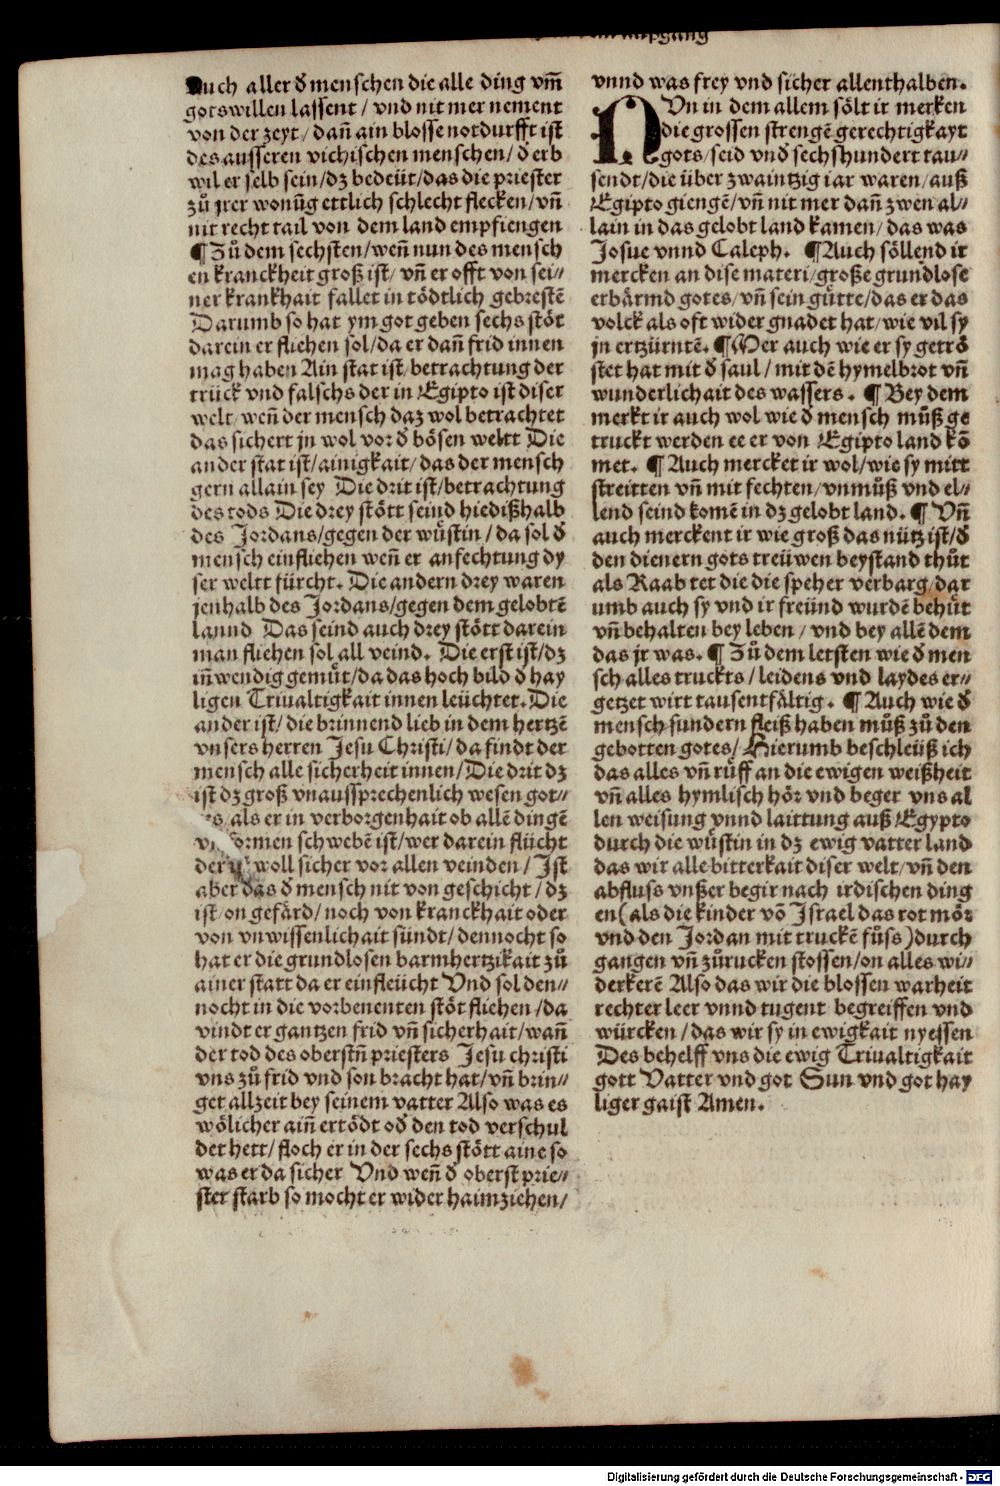 Auch aller đ menschen die alle ding vm̄
gotswillen lassent / vnd nit mer nement
von der zeyt / dañ ain blosse notdurfft ist
des ausseren vichischen menschen / đ erb
wil er selb sein / dz bedeüt / das die priester
zů jrer wonũg ettlich schlecht flecken / vñ
nit recht tail von dem land empfiengen
¶ Zů dem sechsten / weñ nun des mensch
en kranckheit groß ist / vñ er offt von sei⸗
ner krankhait fallet in tödtlich gebrestẽ
Darumb so hat ym got geben sechs stöt
darein er fliehen sol / da er dañ frid innen
mag haben Ain stat ist / betrachtung der
trück vnd falschs der in Egipto ist diser
welt / weñ der mensch daz wol betrachtet
das sichert jn wol vor đ bösen weltt Die
ander stat ist / ainigkait / das der mensch
gern allain sey Die drit ist / betrachtung
des tods Die drey stött seind hiedißhalb
des Jordans / gegen der wüstin / da sol đ
mensch einfliehen weñ er anfechtung dy
ser weltt fürcht. Die andern drey waren
jenhalb des Jordans / gegen dem gelobtẽ
lannd Das seind auch drey stött darein
man fliehen sol all veind. Die erst ist / dz
iñwendig gemüt / da das hoch bild đ hay
ligen Triualtigkait innen leüchtet. Die
ander ist / die brinnend lieb in dem hertzẽ
vnsers herren Jesu Christi / da findt der
mensch alle sicherheit innen / Die drit dz
ist dz groß vnaussprechenlich wesen got⸗
es / als er in verborgenhait ob allẽ dingẽ
formen schwebẽ ist / wer darein flücht
der woll sicher vor allen veinden / Ist
aber das đ mensch nit von geschicht / dz
ist / on gefärd / noch von kranckhait oder
von vnwissenlichait sündt / dennocht so
hat er die grundlosen barmhertzikait zů
ainer statt da er einfleücht Vnd sol den⸗
nocht in die vorbenenten stöt fliehen / da
vindt er gantzen frid vñ sicherhait / wañ
der tod des oberstñ priesters Jesu christi
vns zů frid vnd son bracht hat / vñ brin⸗
get allzeit bey seinem vatter Also was es
wölicher aiñ ertödt ođ den tod verschul
det hett / floch er in der sechs stött aine so
was er da sicher Vnd weñ đ oberst prie⸗
ster starb so mocht er wider haimziehen /
vnnd was frey vnd sicher allenthalben.
NVn in dem allem sölt ir merken
die grossen strengẽ gerechtigkayt
gots / seid vnđ sechshundert tau⸗
sendt / die über zwaintzig iar waren / auß
Egipto giengẽ / vñ nit mer dañ zwen al⸗
lain in das gelobt land kamen / das was
Josue vnnd Caleph. ¶ Auch söllend ir
mercken an dise materi / große grundlose
erbärmd gotes / vñ sein gütte / das er das
volck als oft wider gnadet hat / wie vil sy
jn ertzürntẽ. ¶ Mer auch wie er sy getrö
stet hat mit đ saul / mit dẽ hymelbrot vñ
wunderlichait des wassers. ¶ Bey dem
merkt ir auch wol wie đ mensch můß ge
truckt werden ee er von Egipto land kõ
met. ¶ Auch mercket ir wol / wie sy mitt
streitten vñ mit fechten / vnmůß vnd el⸗
lend seind komẽ in dz gelobt land. ¶ Vñ
auch merckent ir wie groß das nütz ist / đ
den dienern gots treüwen beystand thůt
als Raab tet die die speher verbarg / dar
umb auch sy vnd ir freünd wurdẽ behüt
vñ behalten bey leben / vnd bey allẽ dem
das jr was. ¶ Zů dem letsten wie đ men
sch alles truckts / leidens vnd laydes er⸗
getzet wirt tausentfältig. ¶ Auch wie đ
mensch sundern fleiß haben můß zů den
gebotten gotes / Hierumb beschleüß ich
das alles vñ rüff an die ewigen weißheit
vñ alles hymlisch hör vnd beger vns al
len weisung vnnd laittung auß Egypto
durch die wüstin in dz ewig vatter land
das wir alle bitterkait diser welt / vñ den
abfluss vnßer begir nach irdischen ding
en ( als die kinder võ Israel das rot mör
vnd den Jordan mit truckẽ füss ) durch
gangen vñ zůrucken stossen / on alles wi⸗
derkerẽ Also das wir die blossen warheit
rechter leer vnnd tugent begreiffen vnd
würcken / das wir sy in ewigkait nyessen
Des behelff vns die ewig Triualtigkait
gott Vatter vnd got Sun vnd got hay
liger gaist Amen.
Digitalisierung gefördert durch die Deutsche Forschungsgemeinschaft - DFG